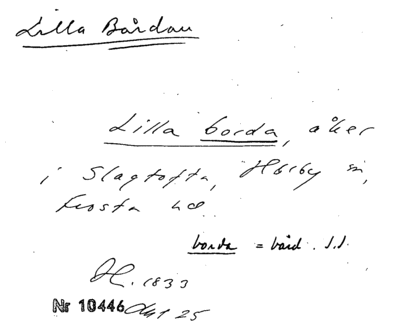 Lilla Bårdan
Lilla borda, åker
i Slagtofta, Hörby sn,
Frosta hd
borda = bård.
H. 1833
Nr 10446 25